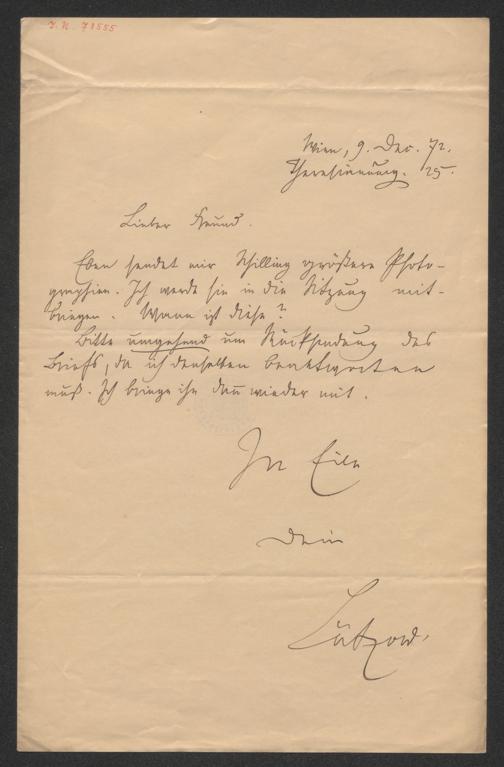 I. N. 78555
Wien, 9. Dec. 72.
Theresianumg. 25.
Lieber Freund.
Eben sendet mir Schilling größere Photo-
graphien. Ich werde sie in die Sitzung mit-
bringen. Wann ist diese?
Bitte umgehend um Rücksendung des
Briefs, da ich denselben beantworten
muß. Ich bringe ihn dann wieder mit.
In Eile
Dein
Lützow.